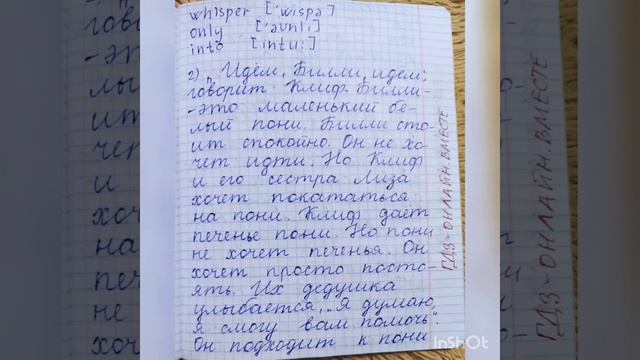 whisper ['wispə]
only ['əunli]
into [intu:]
2) „Идём, Билли, идем;
говорит Клиф. Билли-
-это маленький бе-
лый пони. Билли сто-
ит спокойно. Он не хо-
чет идти. Но Клиф
и его сестра Лиза
хочет покататься
на пони. Клиф даёт
печенье пони. Но пони
не хочет печенья. Он
хочет просто посто-
ять. Их дедушка
улыбается, „Я думаю,
я смогу вам помочь“.
Он подходит к пони
ГДЗ-ОНЛАЙН.ВМЕСТЕ
InShOt